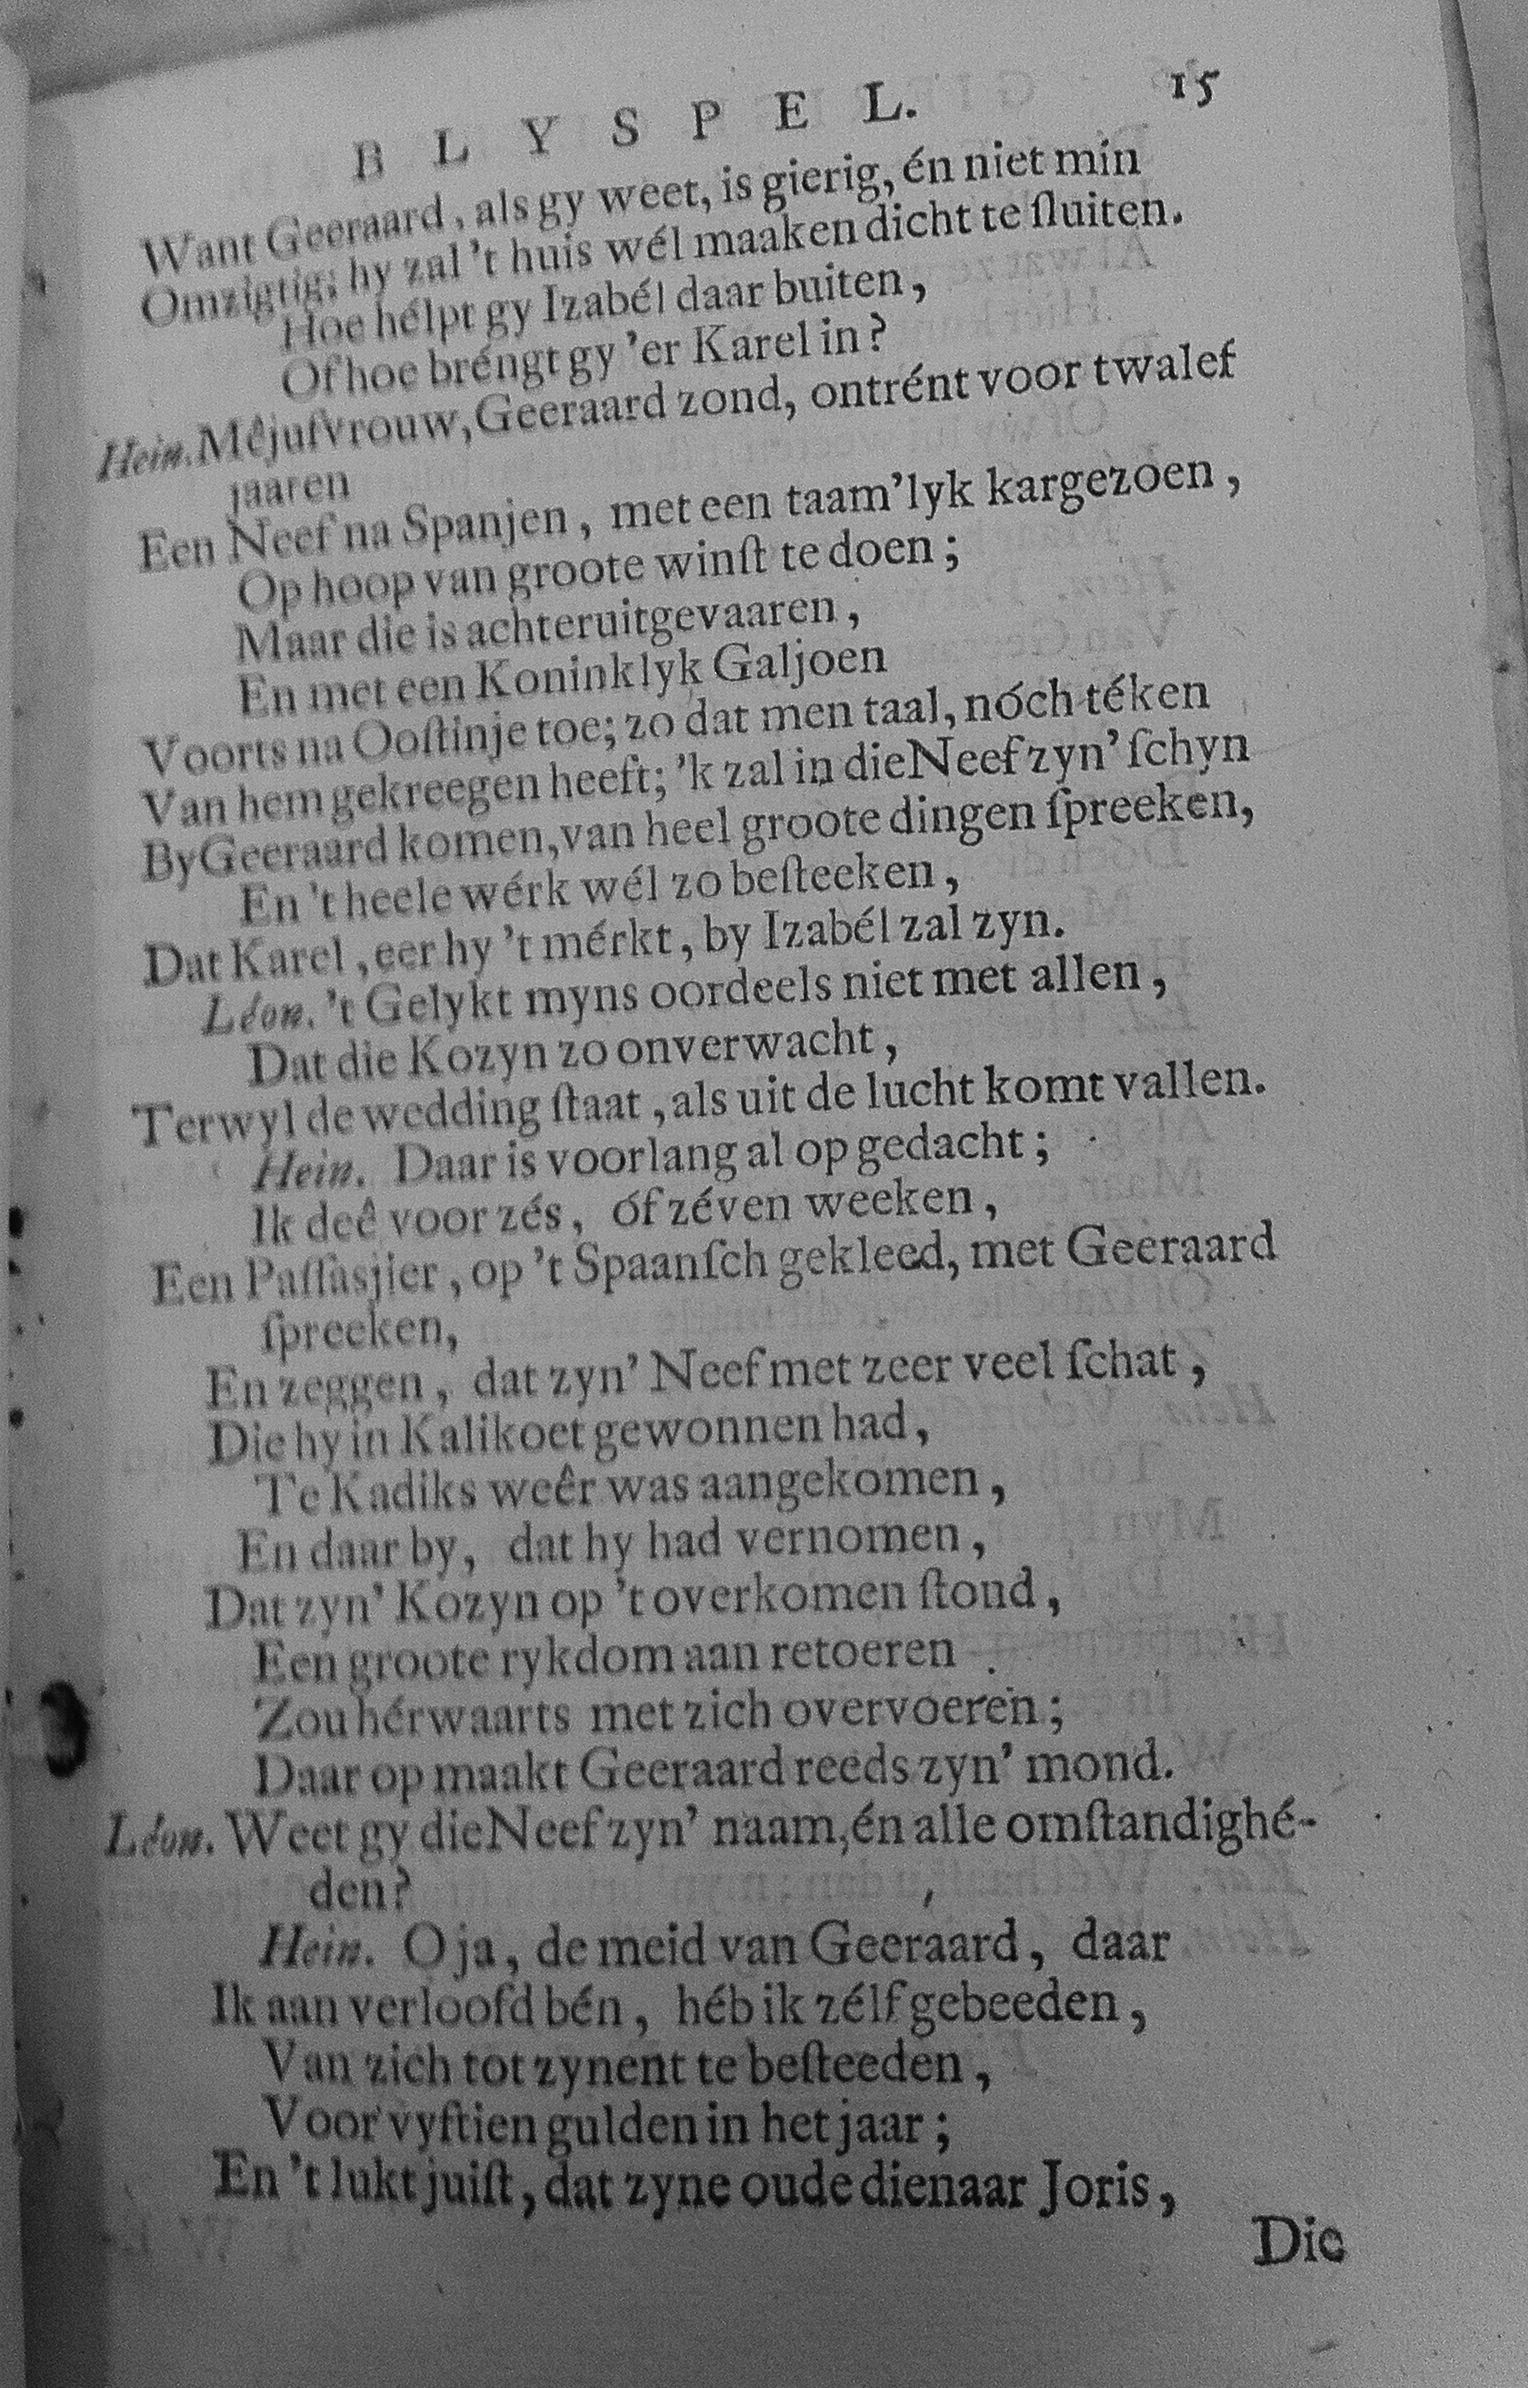 BLYSPEL. 15
Want Geeraard, als gy weet, is gierig, én niet min
Omzigtig; hy zal 't huis wél maaken dicht te ſluiten.
Hoe hélpt gy Izabél daar buiten,
Of hoe bréngt gy 'er Karel in?
Hein. Mêjufvrouw, Geeraard zond, ontrént voor twalef
jaaren
Een Neef na Spanjen, met een taam'lyk kargezoen,
Op hoop van groote winſt te doen;
Maar die is achteruitgevaaren,
En met een Koninklyk Galjoen
Voorts na Ooſtinje toe; zo dat men taal, nóch téken
Van hem gekreegen heeft; 'k zal in die Neef zyn' ſchyn
By Geeraard komen, van heel groote dingen ſpreeken,
En 't heele wérk wél zo beſteeken,
Dat Karel, eer hy 't mérkt, by Izabél zal zyn.
Léon. 't Gelykt myns oordeels niet met allen,
Dat die Kozyn zo onverwacht,
Terwyl de wedding ſtaat, als uit de lucht komt vallen.
Hein. Daar is voorlang al op gedacht;
Ik deê voor zés, óf zéven weeken,
Een Paſſasjier, op 't Spaanſch gekleed, met Geeraard
ſpreeken,
En zeggen, dat zyn' Neef met zeer veel ſchat,
Die hy in Kalikoet gewonnen had,
Te Kadiks weêr was aangekomen,
En daar by, dat hy had vernomen,
Dat zyn' Kozyn op 't overkomen ſtond,
Een groote rykdom aan retoeren
Zou hérwaarts met zich overvoeren;
Daar op maakt Geeraard reeds zyn' mond.
Léon. Weet gy die Neef zyn' naam, én alle omſtandighé-
den?
Hein. O ja, de meid van Geeraard, daar
Ik aan verloofd bén, héb ik zélf gebeeden,
Van zich tot zynent te beſteeden,
Voor vyftien gulden in het jaar;
En 't lukt juiſt, dat zyne oude dienaar Joris,
Die